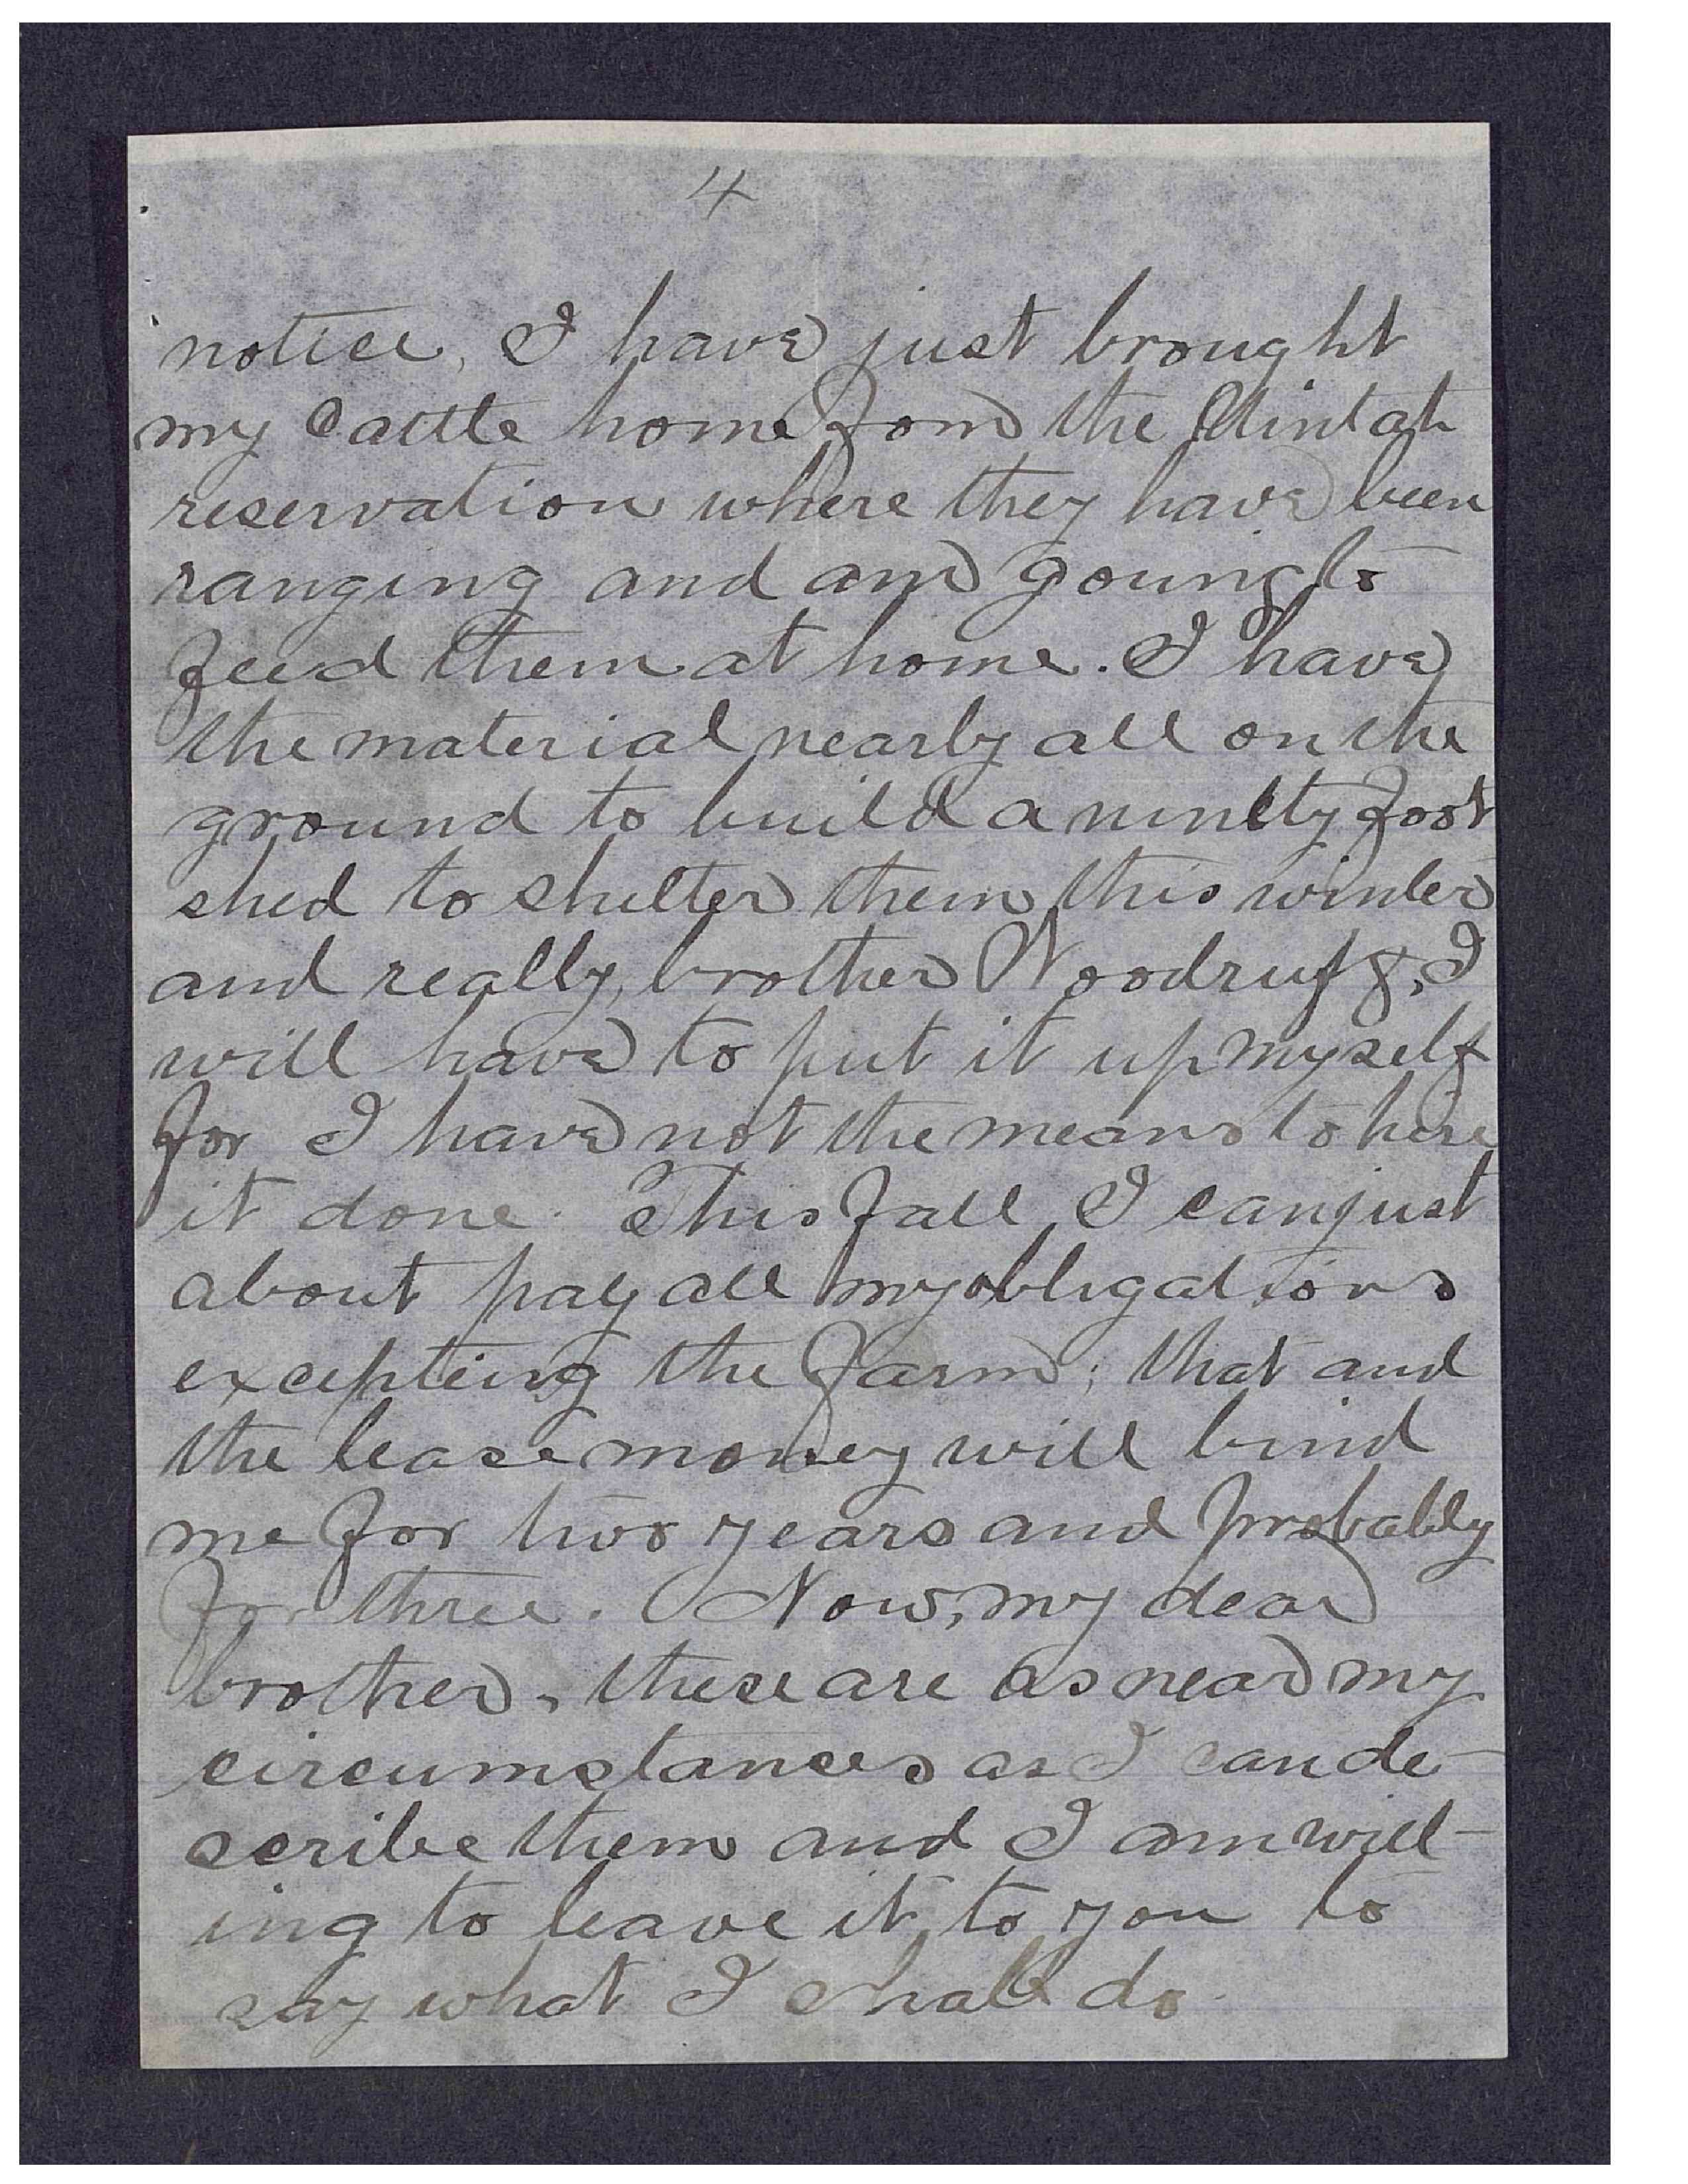 4
notice, I have just brought
my Cattle home fom the Uintah
reservation where they have been
ranging and am going to
feed them at home. I have
the material nearly all on the
ground to build a ninety foot
shed to shelter them this winter
and really, brother Woodruff, I
will have to put it up myself
for I have not the means to hire
it done. This fall I can just
about pay all my obligations
excepting the farm; that and
the lease money will bind
me for two years and probably
for three. Now, my dear
brother, these are as near my
circumstances as I can de-
scribe them and I am will-
ing to leave it to you to
say what I shall do.